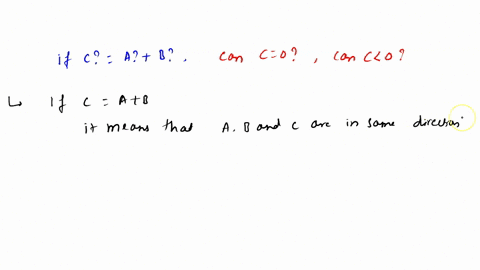 if C? = A? + B?, can C=0?, can C<0?
↳ If C = A+B
it means that A, B and C are in same direction